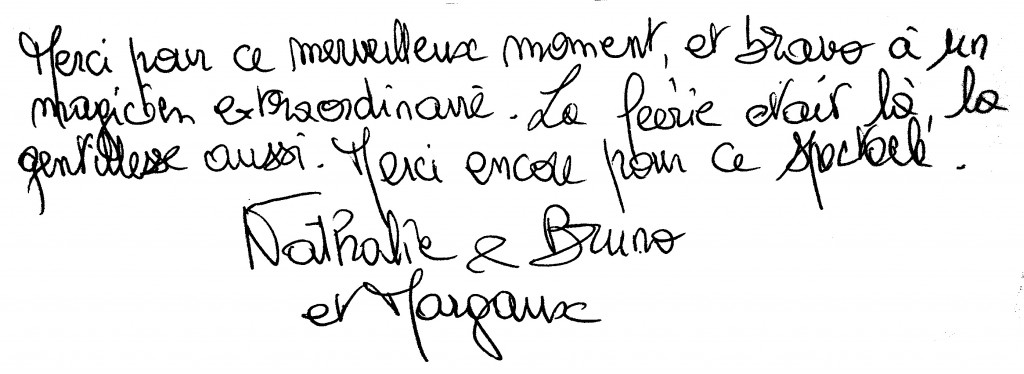 Merci pour ce merveilleux moment, et bravo à un
magicien extraordinaire. La féérie était là, la
gentillesse aussi. Merci encore pour ce spectacle.
Nathalie & Bruno
et Margaux